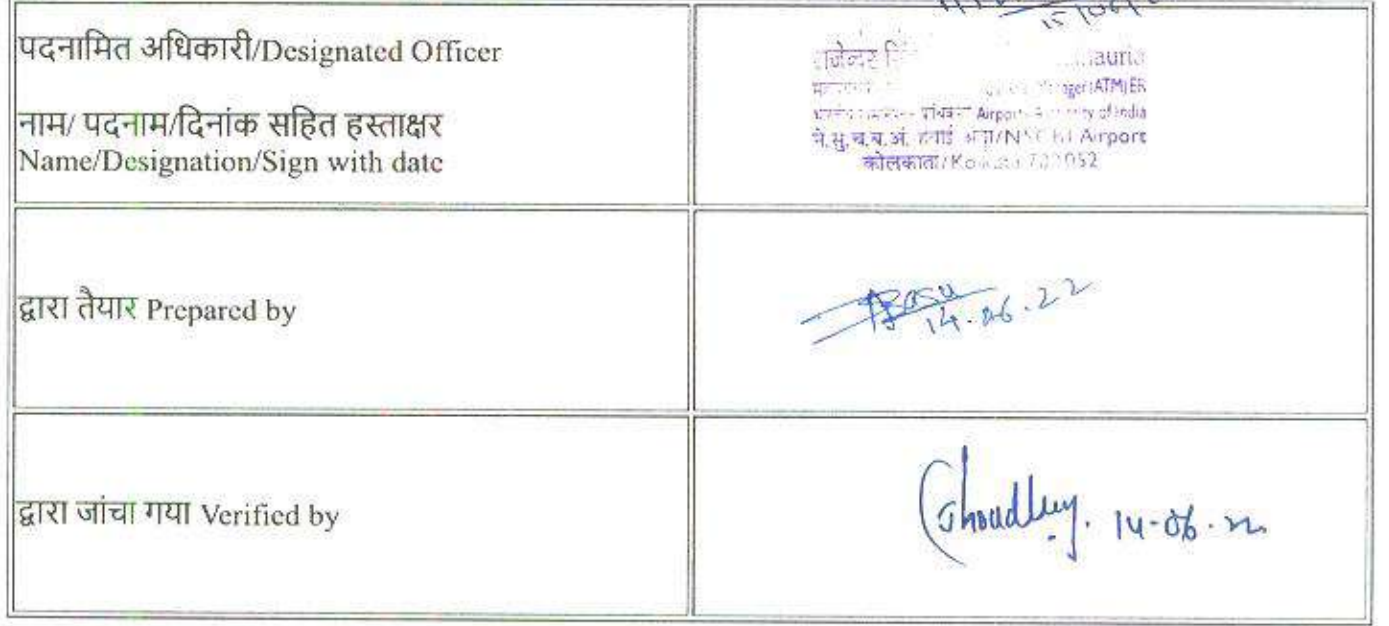 15/06/
पदनामित अधिकारी/Designated Officer
नाम/ पदनाम/दिनांक सहित हस्ताक्षर
Name/Designation/Sign with date
राजेन्दर
(ATM)ER
Airports Authority of India
ने.सु.च.ब.अं. हवाई अड्डा/NSCBI Airport
कोलकाता/Kolkata 700052
द्वारा तैयार Prepared by
Basu
14.06.22
द्वारा जांचा गया Verified by
Choudhury. 14-06-22